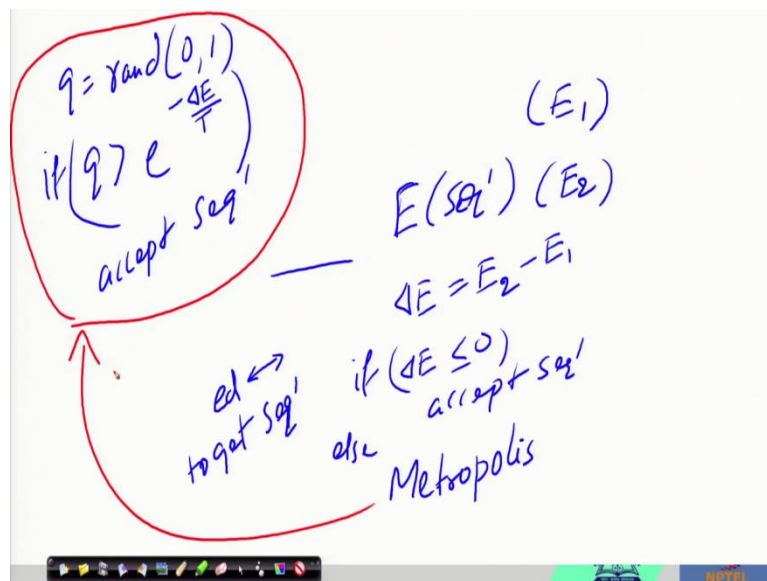 q = rand(0,1)
if(q > e^{-ΔE/T})
accept seq'
(E1)
E(seq') (E2)
ΔE = E2 - E1
if (ΔE ≤ 0)
accept seq'
ed ↔
to get seq'
else
Metropolis
NPTEL